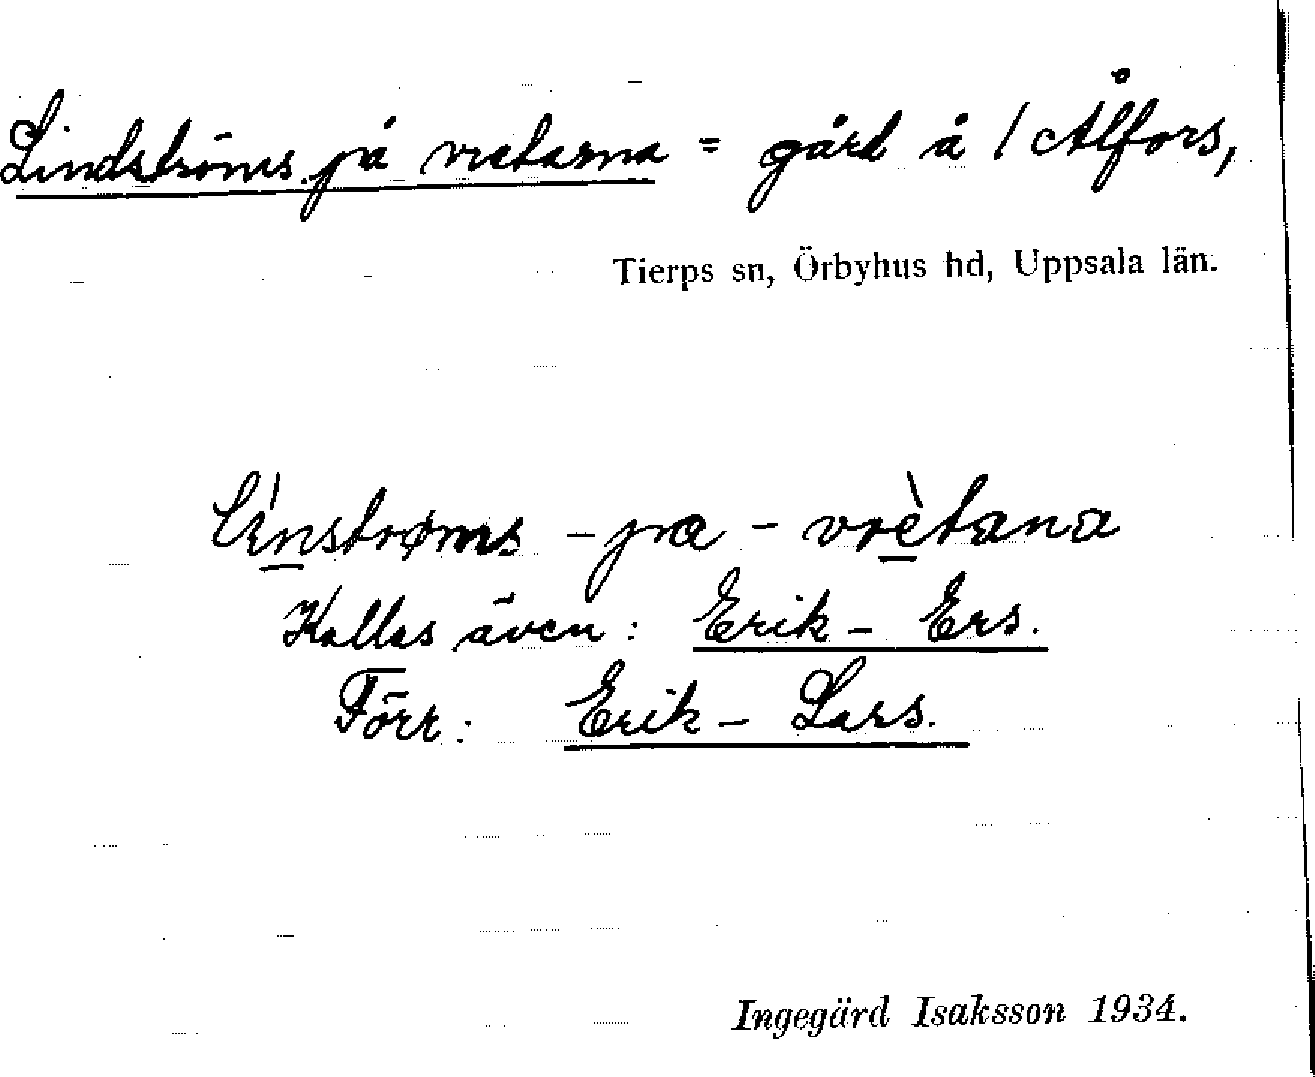 Lindströms på vretarna = gård å / Ålfors,
Tierps sn, Örbyhus hd, Uppsala län.
línstrøms - pa - vrètana
Kallas även: Erik - Ers.
Förr: Erik - Lars.
Ingegärd Isaksson 1934.